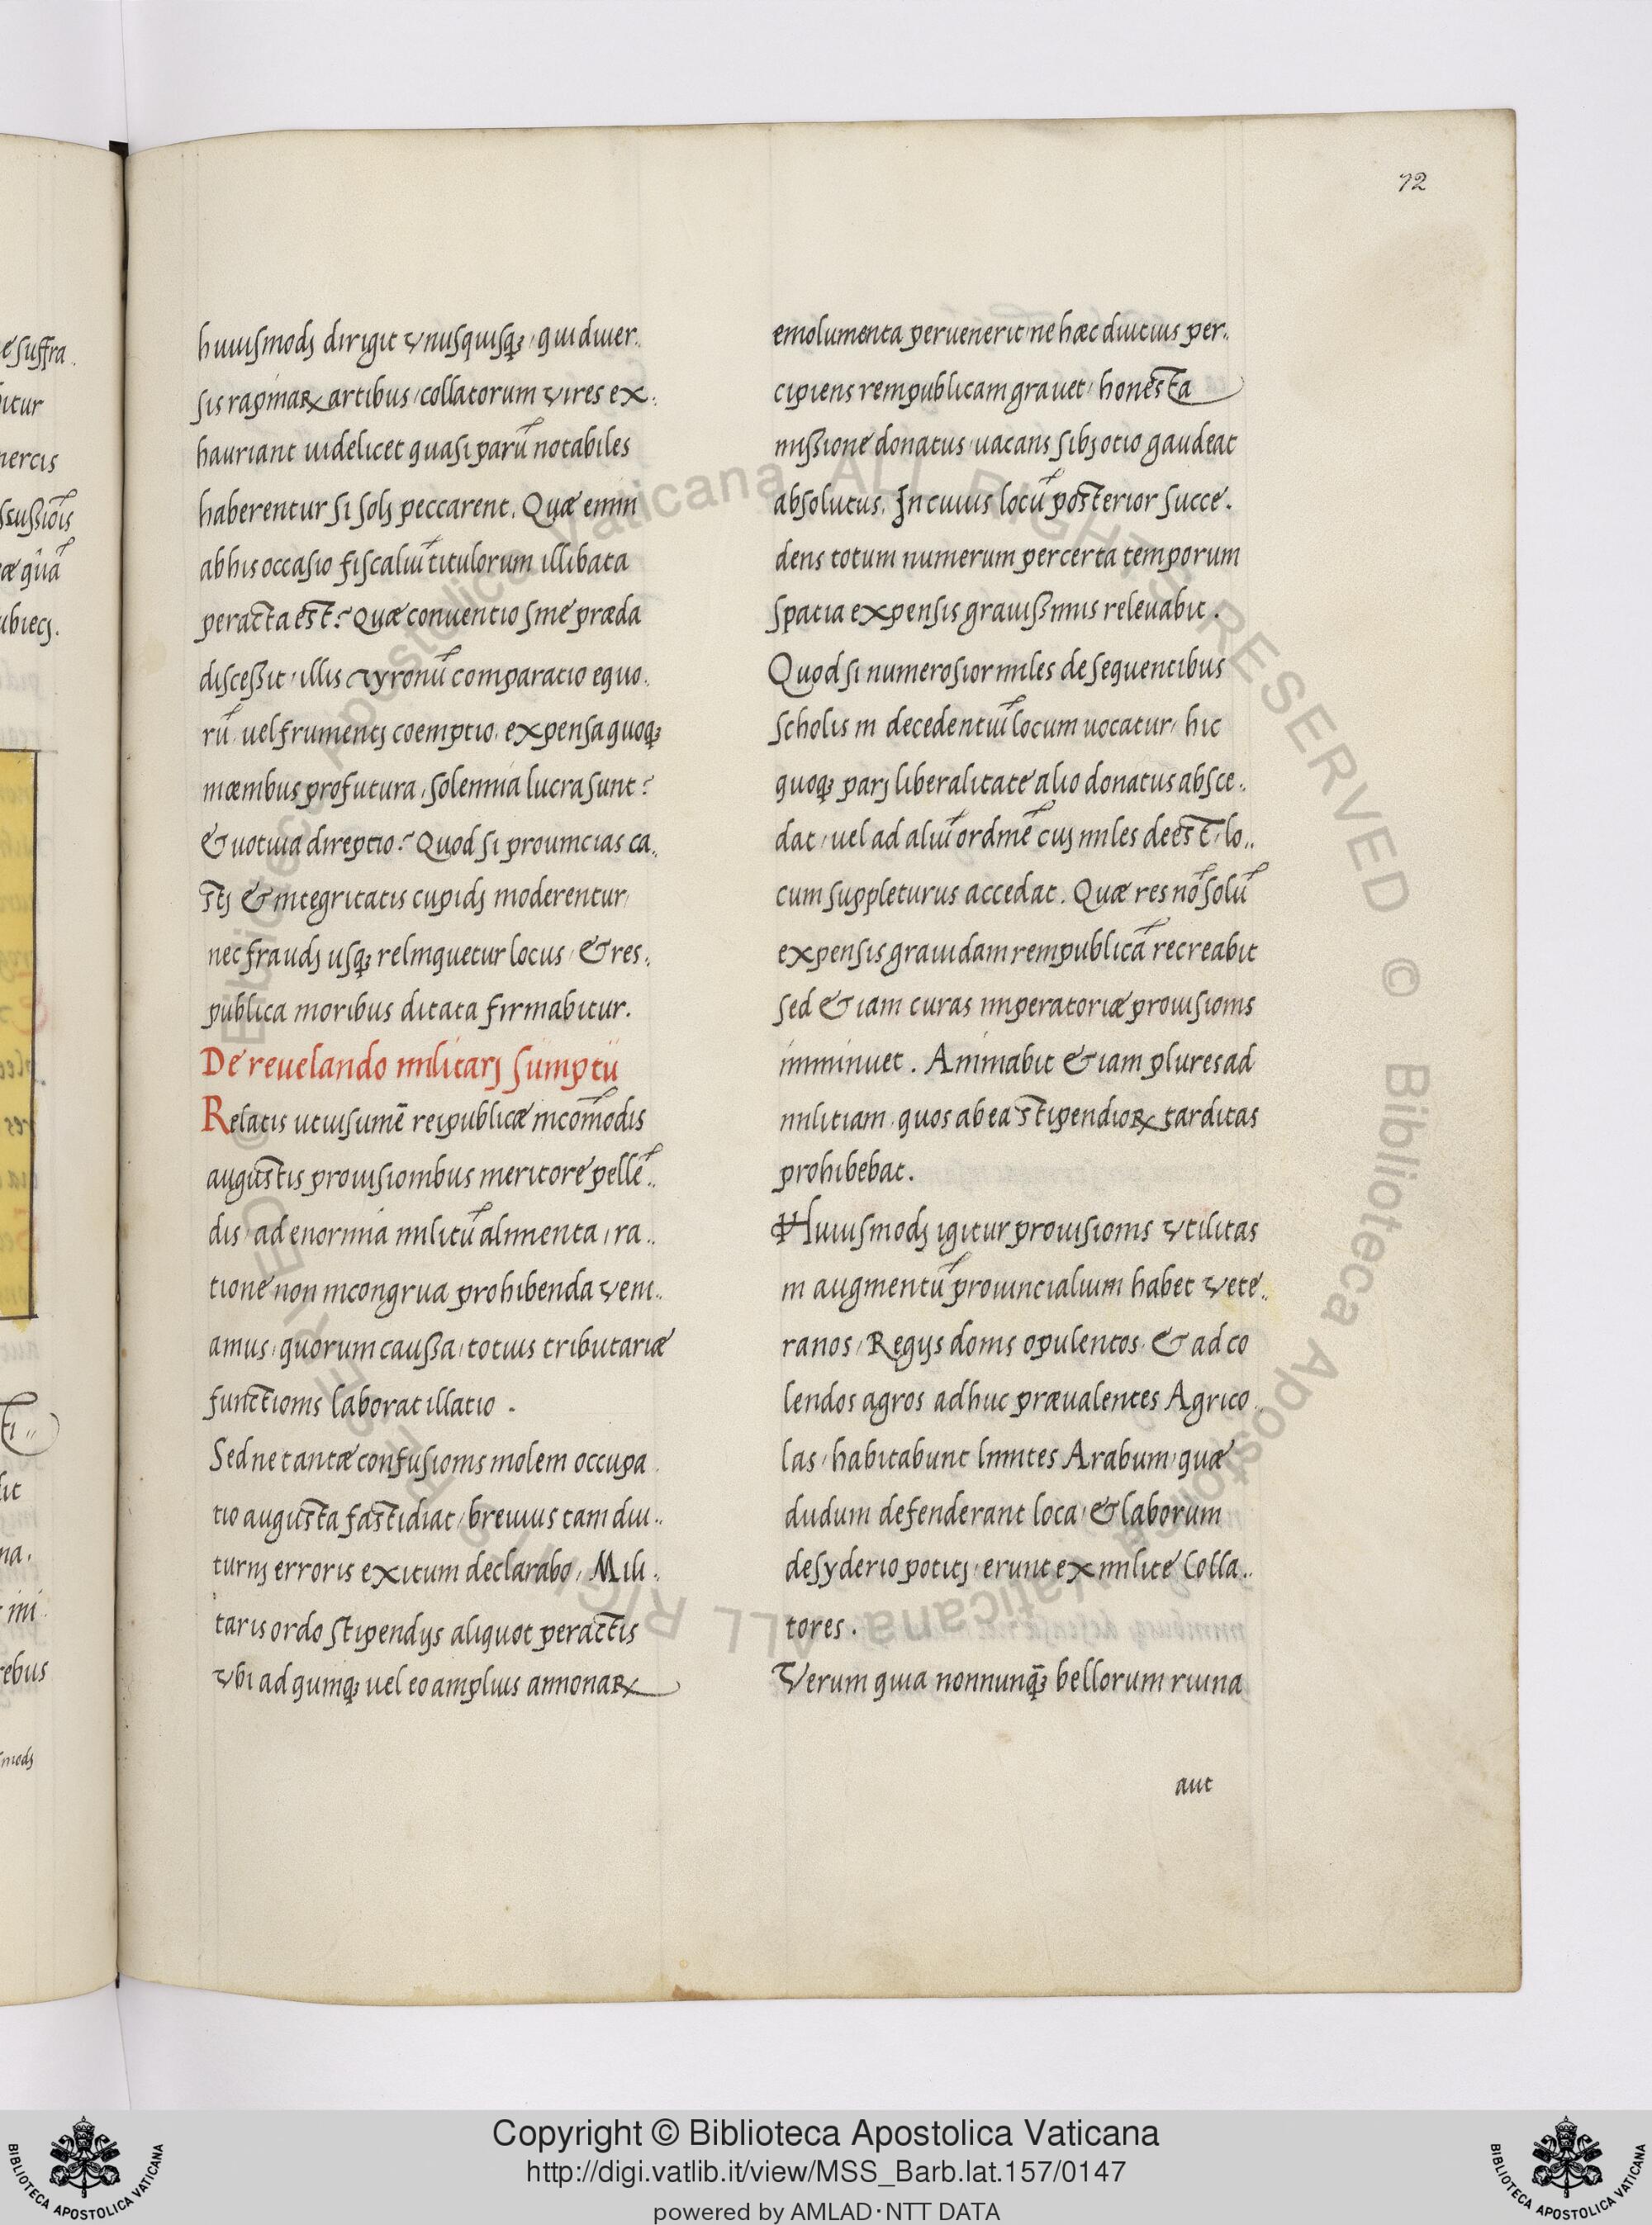 72
huiuſmodj dirigit vnuſquiſq;, qui diuer.
ſis rapinaꝝ artibus, collatorum vires ex.
hauriant uidelicet quaſi parū notabiles
haberentur ſi ſolj peccarent. Quæ enim
ab his occaſio fiſcaliū titulorum illibata
peracta est? Quæ conuentio ſine præda
diſceßit, illis Tyronū comparatio equo.
rū, uel frumentj coemptio, expenſa quoq;
mœnibus profutura, ſolennia lucra ſunt?
& uotiua direptio? Quod ſi prouincias ca..
stj & integritatis cupidj moderentur,
nec fraudj uſq; relinquetur locus, & res.
publica moribus ditata firmabitur.
De reuelando militarj ſumptu
Relatis utiuſumē reipublicæ incōmodis
augustis prouiſionibus merito repellē..
dis, ad enormia militū alimenta, ra..
tione non incongrua prohibenda veni..
amus, quorum caußa, totius tributariæ
functionis laborat illatio.
Sed ne tantæ confuſionis molem occupa.
tio augusta fastidiat, breuius tam diu..
turnj erroris exitum declarabo, Mili.
taris ordo ſtipendijs aliquot peractis
vbi ad quinq; uel eo amplius annonaꝝ
emolumenta peruenerit, ne hæc diutius per..
cipiens rempublicam grauet, honesta
mißione donatus, uacans ſibj otio gaudeat
abſolutus. In cuius locū posterior ſucce.
dens totum numerum per certa temporum
ſpatia expenſis grauißimis releuabit.
Quod ſi numeroſior miles de ſequentibus
ſcholis in decedentiū locum uocatur, hic
quoq; parj liberalitate alio donatus abſce..
dat, uel ad aliū ordinē cuj miles deest, lo..
cum ſuppleturus accedat. Quæ res nō ſolū
expenſis grauidam rempublicā recreabit
ſed & iam curas imperatoriæ prouiſionis
imminuet. Animabit & iam plures ad
militiam, quos ab ea stipendioꝝ tarditas
prohibebat.
Huiuſmodj igitur prouiſionis vtilitas
in augmentū prouincialium habet vete..
ranos, Regijs donis opulentos, & ad co
lendos agros adhuc præualentes Agrico.
las, habitabunt limites Arabum, quæ
dudum defenderant loca, & laborum
deſyderio potitj, erunt ex milite Colla..
tores.
Verum quia nonnunq̄; bellorum ruina
aut
Copyright © Biblioteca Apostolica Vaticana
http://digi.vatlib.it/view/MSS_Barb.lat.157/0147
powered by AMLAD·NTT DATA